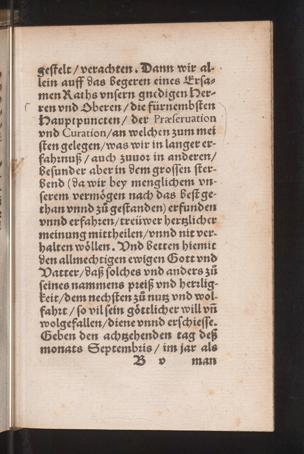 gestelt / verachten. Dann wir al-
lein auff das begeren eines Ersa-
men Raths vnsern gnedigen Her-
ren vnd Oberen / die fürnembsten
Hauptpuncten / der Præseruation
vnd Curation / an welchen zum mei
sten gelegen / was wir in langer er-
fahrnuß / auch zuuor in anderen /
besunder aber in dem grossen ster-
bend (da wir bey menglichem vn-
serem vermögen nach das best ge-
than vnnd zů gestanden) erfunden
vnnd erfahren / treüwer hertzlicher
meinung mittheilen / vnnd nit ver-
halten wöllen. Vnd betten hiemit
den allmechtigen ewigen Gott vnd
Vatter / daß solches vnd anders zů
seines nammens preiß vnd herzlig-
keit / dem nechsten zů nutz vnd wol-
fahrt / so vil sein göttlicher will vñ
wolgefallen / diene vnnd erschiesse.
Geben den achtzehenden tag deß
monats Septembris / im jar als
B v man